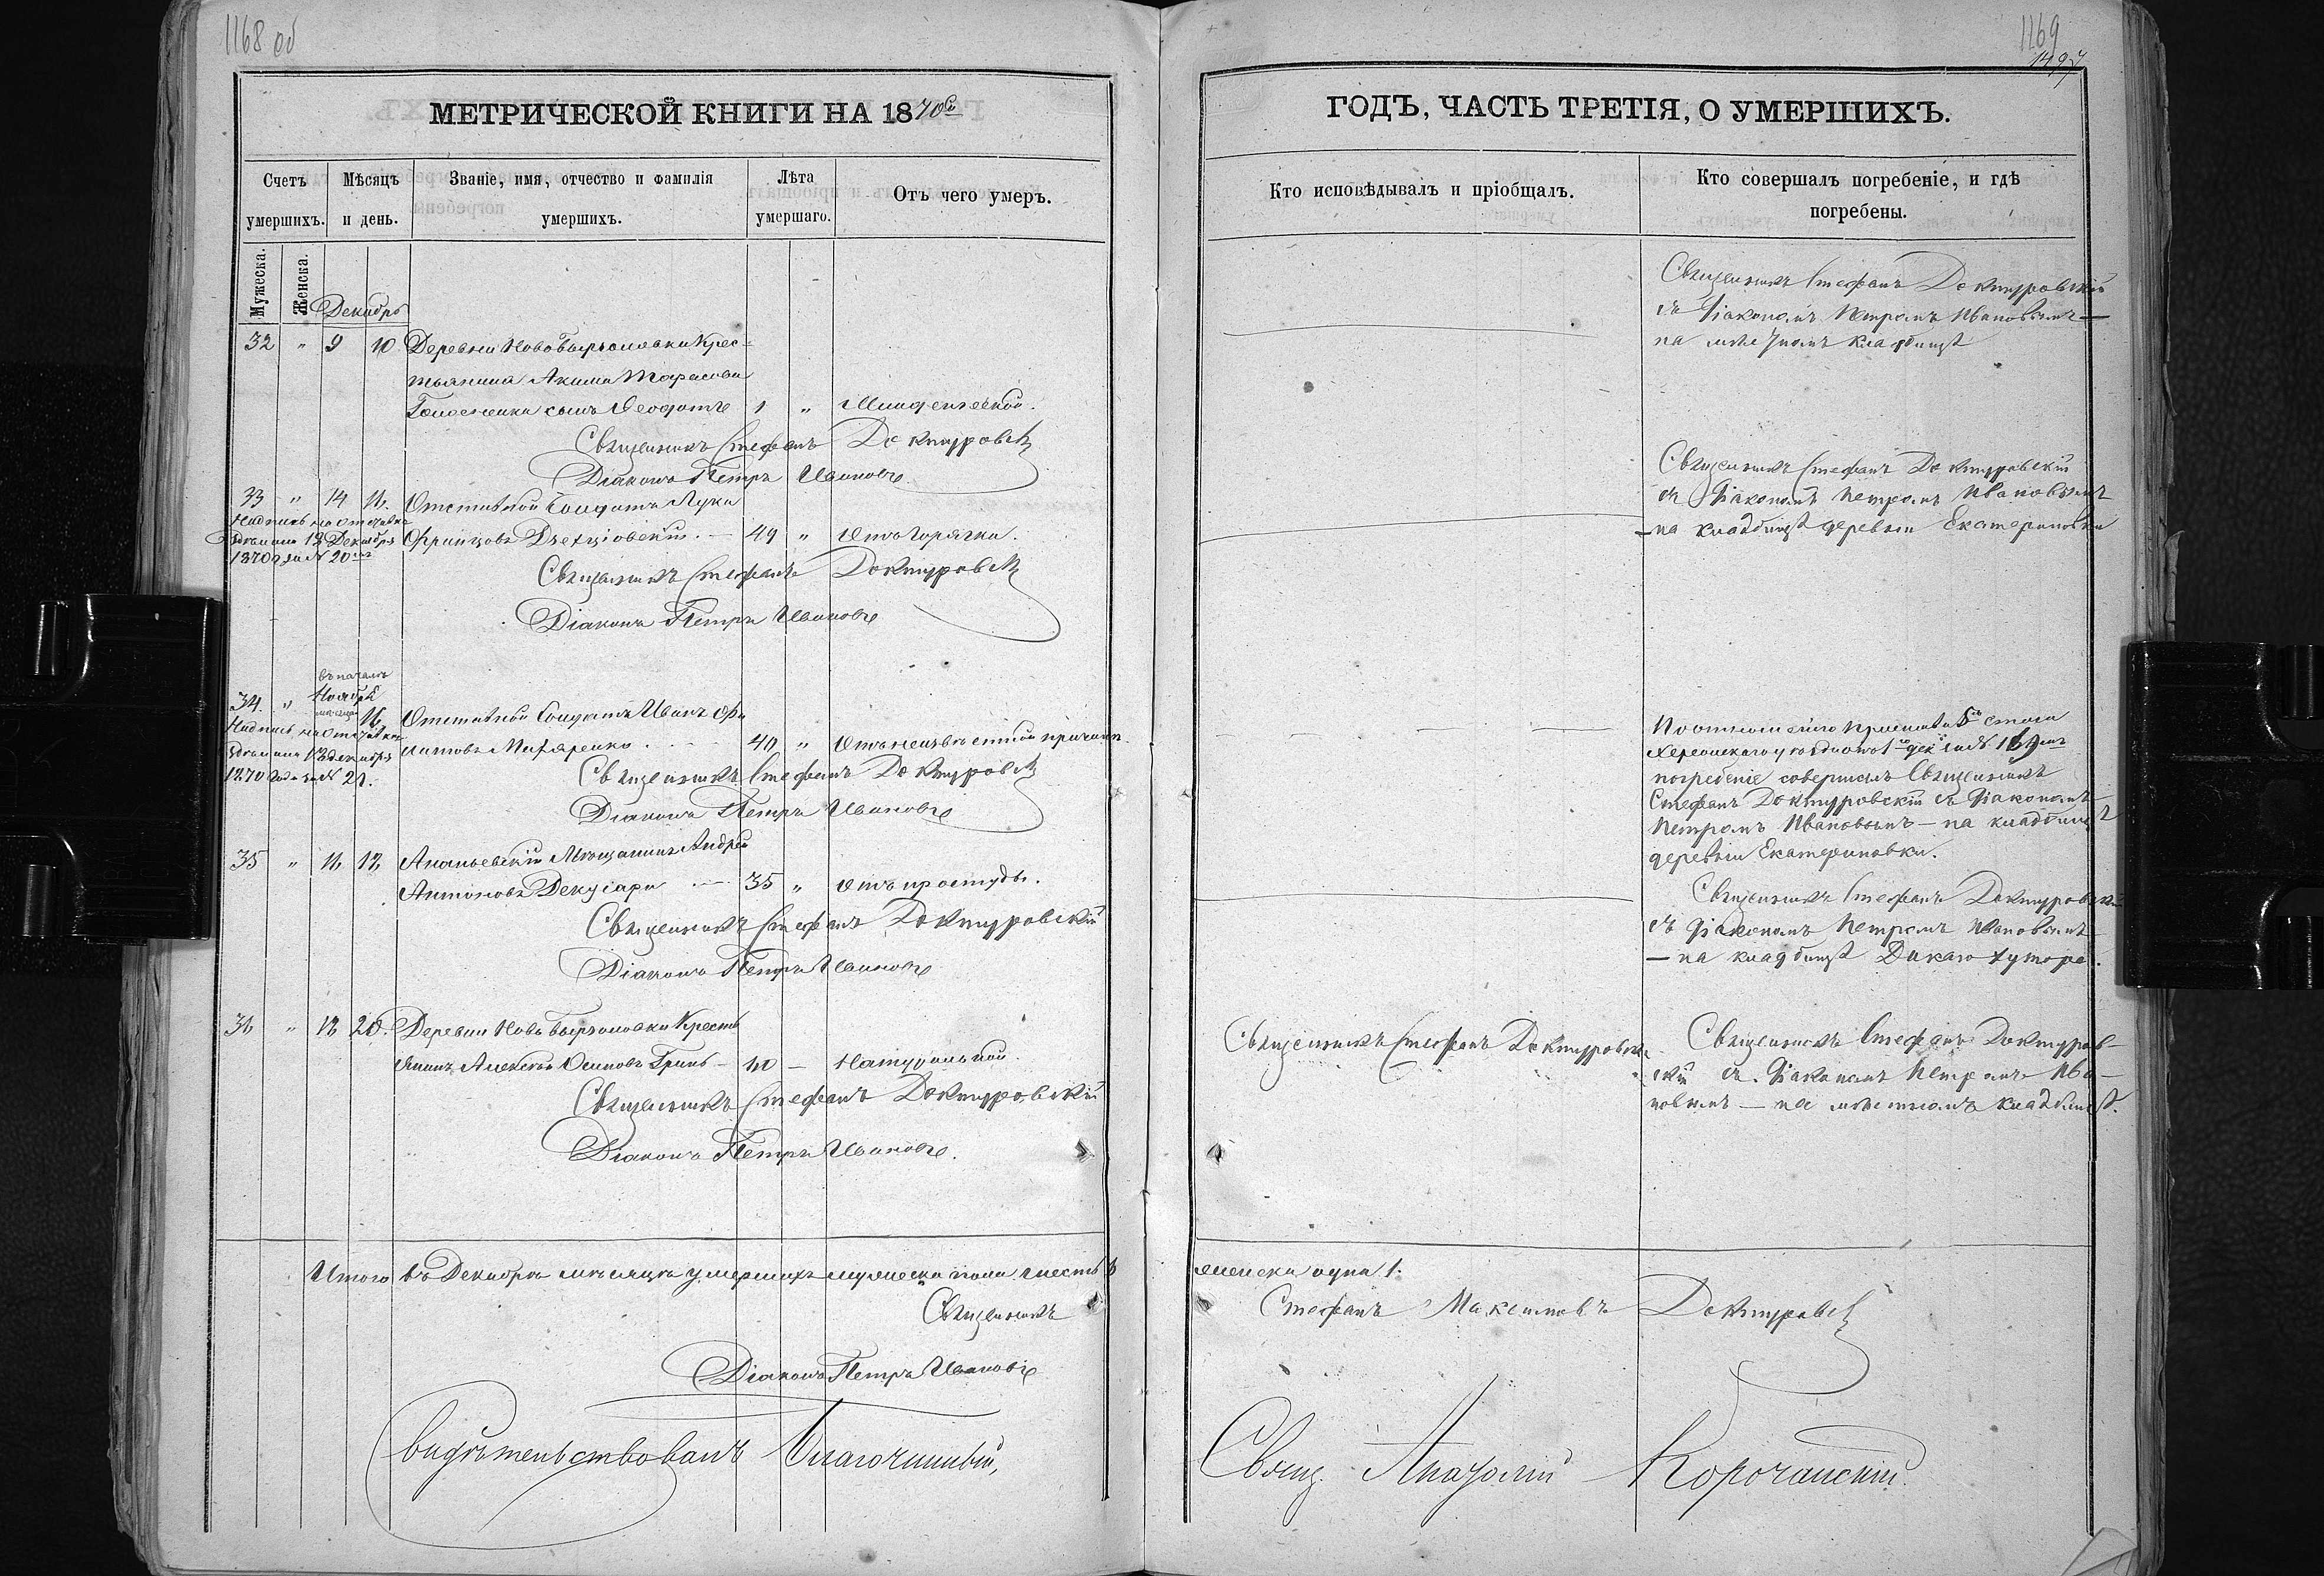 1168 об
МЕТРИЧЕСКОЙ КНИГИ НА 1870й
Счетъ умершихъ.
Мѣсяцъ и день.
Званіе, имя, отчество и фамилія умершихъ.
Лѣта умершаго.
Отъ чего умеръ.
Мужеска.
Женска.
Декабрь
32 " 9 10 Деревни Крес-
тьянина Акима Тарасова
сынъ Ѳеодотъ 1 " Младенческой.
Священникъ Стефанъ Доктуровск
Діаконъ Петръ Ивановъ
33 " 14 16. Отставной Солдатъ Лука
Надпись на отставке
сдѣлана 19 Декабря Францовъ 49 " Отъ горячки.
1870 г. за № 20
Священникъ Стефанъ Доктуровск
Діаконъ Петръ Ивановъ
въ началѣ
34. " Ноября
16 Отставной Солдатъ Иванъ Фи
Надпись на отставке
сдѣлана декабря липовъ 40 " Отъ неизвѣстной причины.
1870 года за № 21.
Священникъ Стефанъ Доктуровск
Діаконъ Петръ Ивановъ
35 " 16 18 Ананьевскій Мѣщанинъ Андрей
Антоновъ 35 " Отъ простуды.
Священникъ Стефанъ Доктуровскій
Діаконъ Петръ Ивановъ
36 " 18 20. Деревни Кресть
янинъ Алексѣй Осиповъ Гринь — — Натуральной.
Священникъ Стефанъ Доктуровскій
Діаконъ Петръ Ивановъ.
Итого въ Декабрѣ мѣсяцѣ умершихъ мужеска пола шесть 6
Священникъ
Діаконъ Петръ Ивановъ
Свидѣтельствовалъ Благочинный,
1169
1497
ГОДЪ, ЧАСТЬ ТРЕТІЯ, О УМЕРШИХЪ.
Кто исповѣдывалъ и пріобщалъ.
Кто совершалъ погребеніе, и гдѣ погребены.
Священникъ Стефанъ Доктуровскій
съ Діакономъ Петромъ Ивановымъ —
на мѣстномъ кладбищѣ
Священникъ Стефанъ Доктуровскій
съ Діакономъ Петромъ Ивановымъ
— на кладбищѣ деревни Екатериновки
По отношенію Пристава стана
Херсонскаго уѣзда отъ
погребеніе совершалъ Священникъ
Стефанъ Доктуровскій съ Діакономъ
Петромъ Ивановымъ — на кладбищѣ
деревни Екатериновки.
Священникъ Стефанъ Доктуровскій
съ Діакономъ Петромъ Ивановымъ
— на кладбищѣ хутора.
Священникъ Стефанъ Доктуровскій
Священникъ Стефанъ Доктуров-
скій съ Діакономъ Петромъ Ива-
новымъ — на мѣстномъ кладбищѣ.
женска одна 1.
Стефанъ Максимовъ Доктуровск
Свящ. Анатолій Корочанскій.